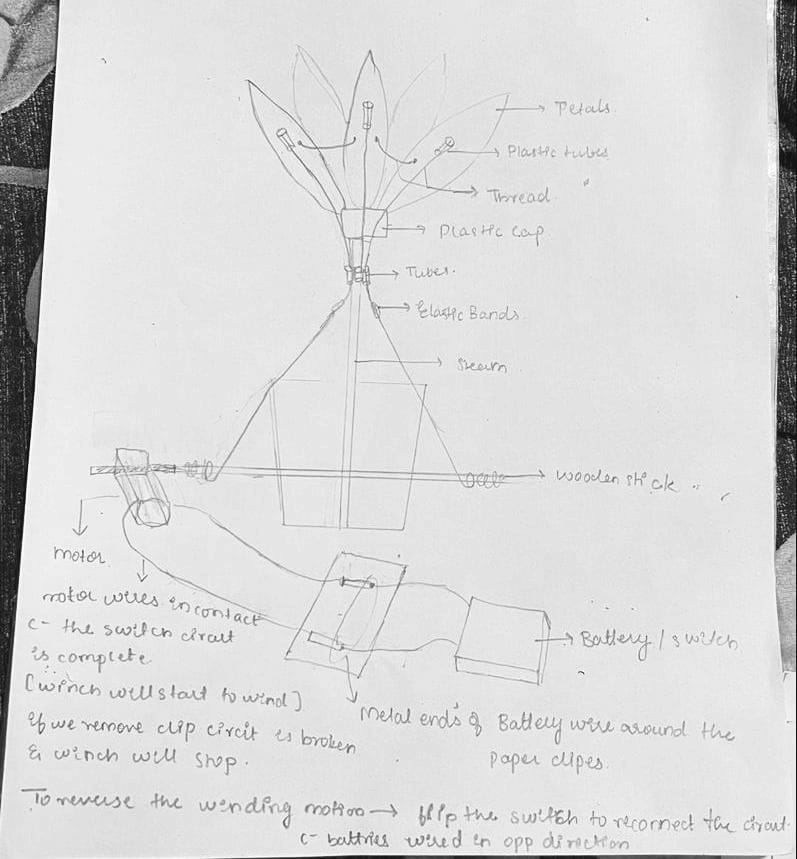 Petals
Plastic tubes
Thread
Plastic Cap
Tubes.
Elastic Bands.
Steam
wooden stick
motor
motor wires in contact
c- the switch ciraut
is complete
[winch will start to wind]
If we remove clip circit is broken
& winch will stop.
Battery / switch
Metal ends of Battery wire around the
paper clipes.
To reverse the winding motion → flip the switch to reconnect the ciraut.
c- battries wired in opp direction